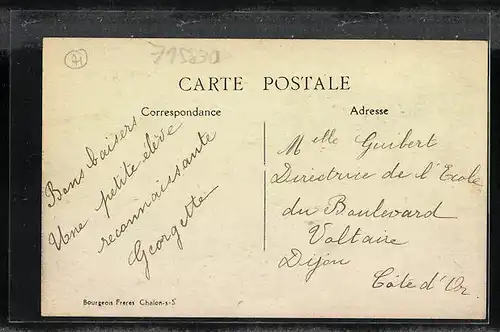 71
715830
CARTE POSTALE
Correspondance
Bons baisers
Une petite élève
reconnaissante
Georgette
Adresse
Melle Guibert
Directrice de l'Ecole
du Boulevard
Voltaire
Dijon
Côte d'Or.
Bourgeois Freres Chalon-s-S